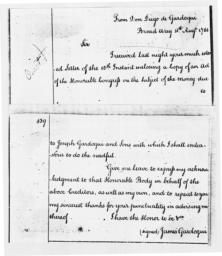 From Don Diego de Gardoqui
Broad Way 16th Augt 1786
Sir
I received last night your much esteem-
ed Letter of the 15th Instant enclosing a Copy of an Act
of the Honorable Congress on the subject of the money due
to
439
to Joseph Gardoqui and Sons with which I shall endea-
vour to do the needful.
Give me leave to express my acknow-
ledgment to that Honorable Body in behalf of the
above Creditors, as well as my own, and to repeat to you
my sincerest thanks for your punctuality in advising me
thereof. I have the Honor to be &c
(signed) James Gardoqui